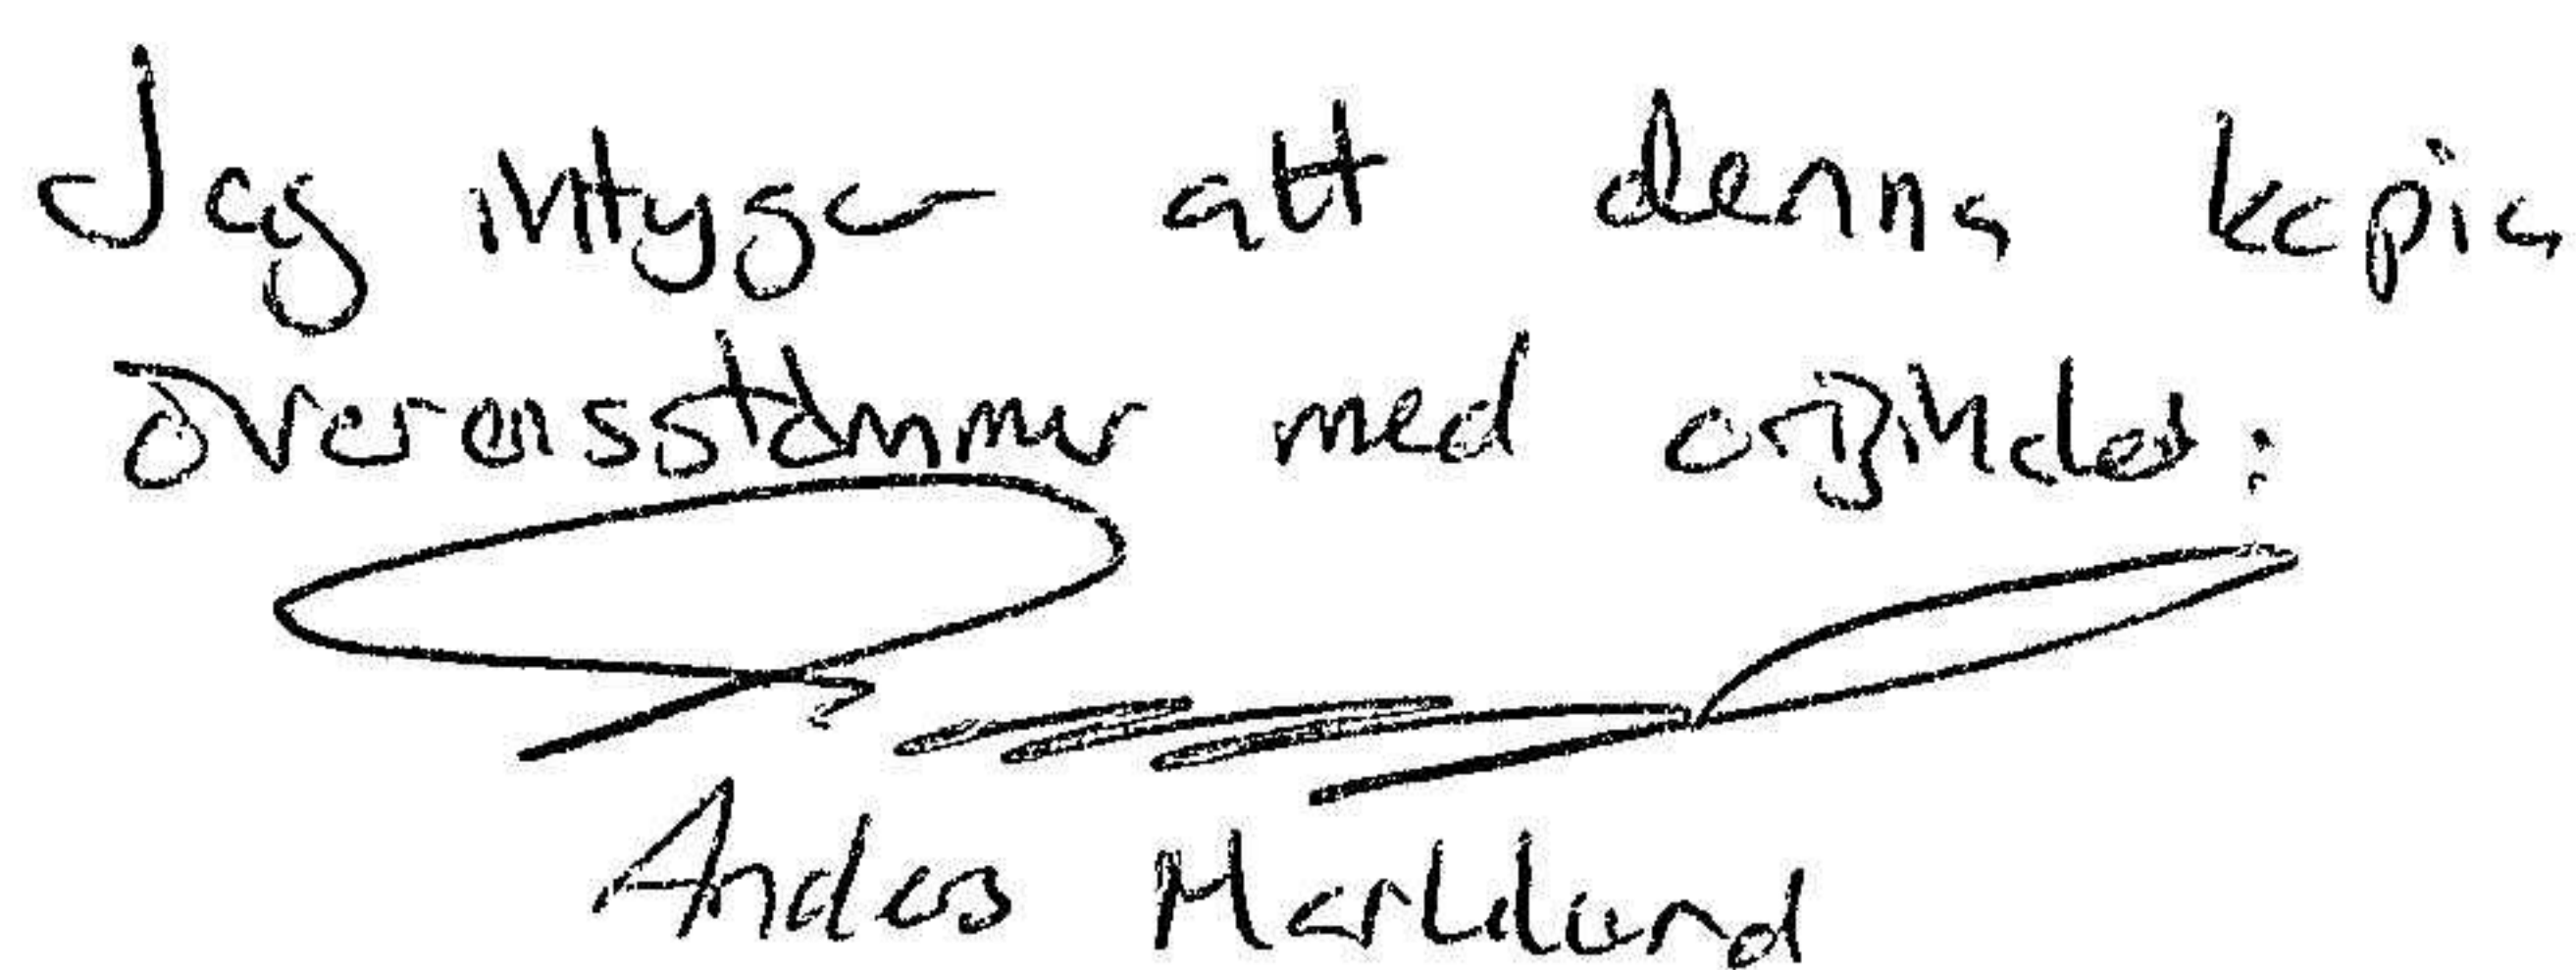 Jag intygar att denna kopia
överensstämmer med originalet:
Anders Marklund